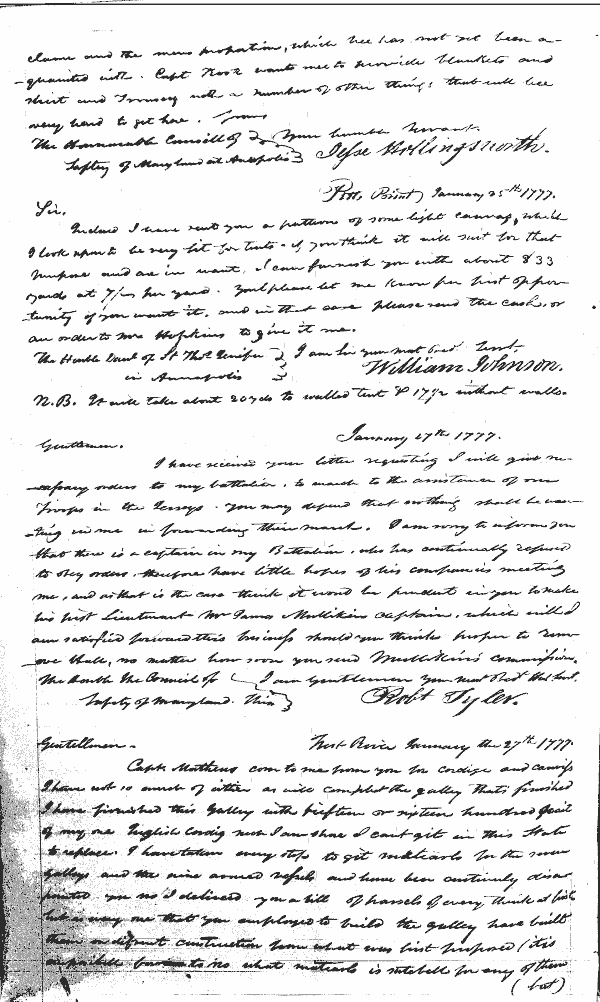 same and the mens proportion, which hee has not yet been a-
-quainted with. Capt Kook wants mee to provide blankets and
shirt and Trousers with a number of other things that will bee
very hard to get here. from
The Honourable Councill of } Your humble Servant.
Saftey of Maryland at Annapolis } Jesse Hollingsworth.
Point, January 25th 1777.
Sir.
Inclosed I have sent you a pattern of some light canvas, which
I look upon to be very fit for tents - if you think it will suit for that
purpose and are in want, I can furnish you with about 833
yards at 7/ per yard. You'l please let me know per first oppor-
tunity if you want it, and in that case please send the cash, or
an order to Mr Hopkins to give it me.
The Honble Danl of St Thos Jenifer } I am Sir your most Obed. Servt.
in Annapolis } William Johnson.
N.B. It will take about 20 yds to walled tent & 17½ without walls.
January 27th 1777.
Gentlemen.
I have received your letter requesting I will give ne-
-cessary orders to my battalion, to march to the assistance of our
Troops in the Jerseys. You may depend that nothing shall be wan-
-ting in me in forwarding their march. I am sorry to inform you
that there is a captain in my Battalion, who has continually refused
to obey orders, therefore have little hopes of his companies meeting
me, and as that is the case think it would be prudent in you to make
his first Lieutenant Mr James Mullikin captain, which will I
am satisfied forward this business should you thinks proper to
no matter how soon you send Mullikins commission.
The Honble the Council of } I am Gentlemen your most Obed. Hbl. Servt.
Safety of Maryland. This } Robt Tyler.
Gentellmen. West River January the 27th 1777.
Capt. Mathews com to me from you for cordige and canvis
I have not so much of either as will complet the galley thats finished
I have firnished this Galley with fifteen or sixteen hundred
of my one English Cordig which I am shore I cant git in this State
to replace. I have taken every step to get matearls for the
galleys and the nine armed vessels and have ben continuly disa
pointed you no I delivered you a bill of parsels of every think at first
but every one that you employed to build the galley have built
them on difrent construction from what was first proposed (it is
imposibell to no what matearls is nutebell for any of them
(but)